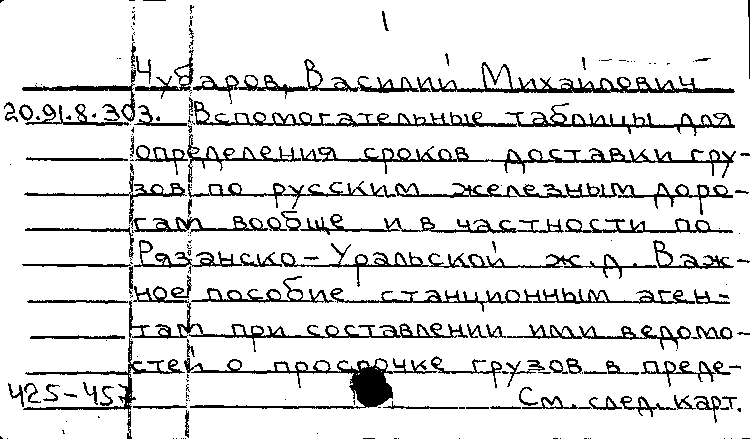 1
Чубаров, Василий Михайлович
20.91.8.303. Вспомогательные таблицы для
определения сроков доставки гру-
зов по русским железным доро-
гам вообще и в частности по
Рязанско-Уральской ж.д. Важ-
ное пособие станционным аген-
там при составлении ими ведомо-
стей о просрочке грузов в преде-
425-457 См. след. карт.